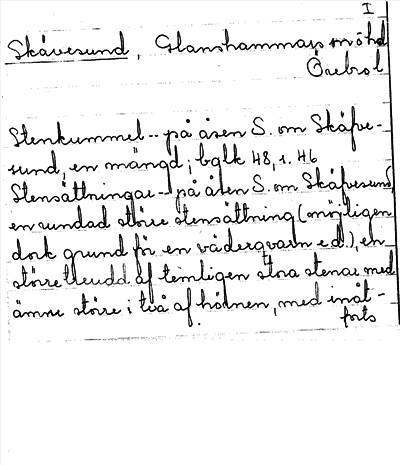 I
Skåvesund, Glanshammars sn o hd
Örebro l
Stenkummel -- på åsen S. om Skåfve-
sund, en mängd; bglk 48, s. 46
Stensättningar -- på åsen S. om Skåfvesund,
en rundad större stensättning (möjligen
dock grund för en väderqvarn e.d.), en
större treudd af temligen stora stenar med
ännu större i två af hörnen, med inåt-
forts